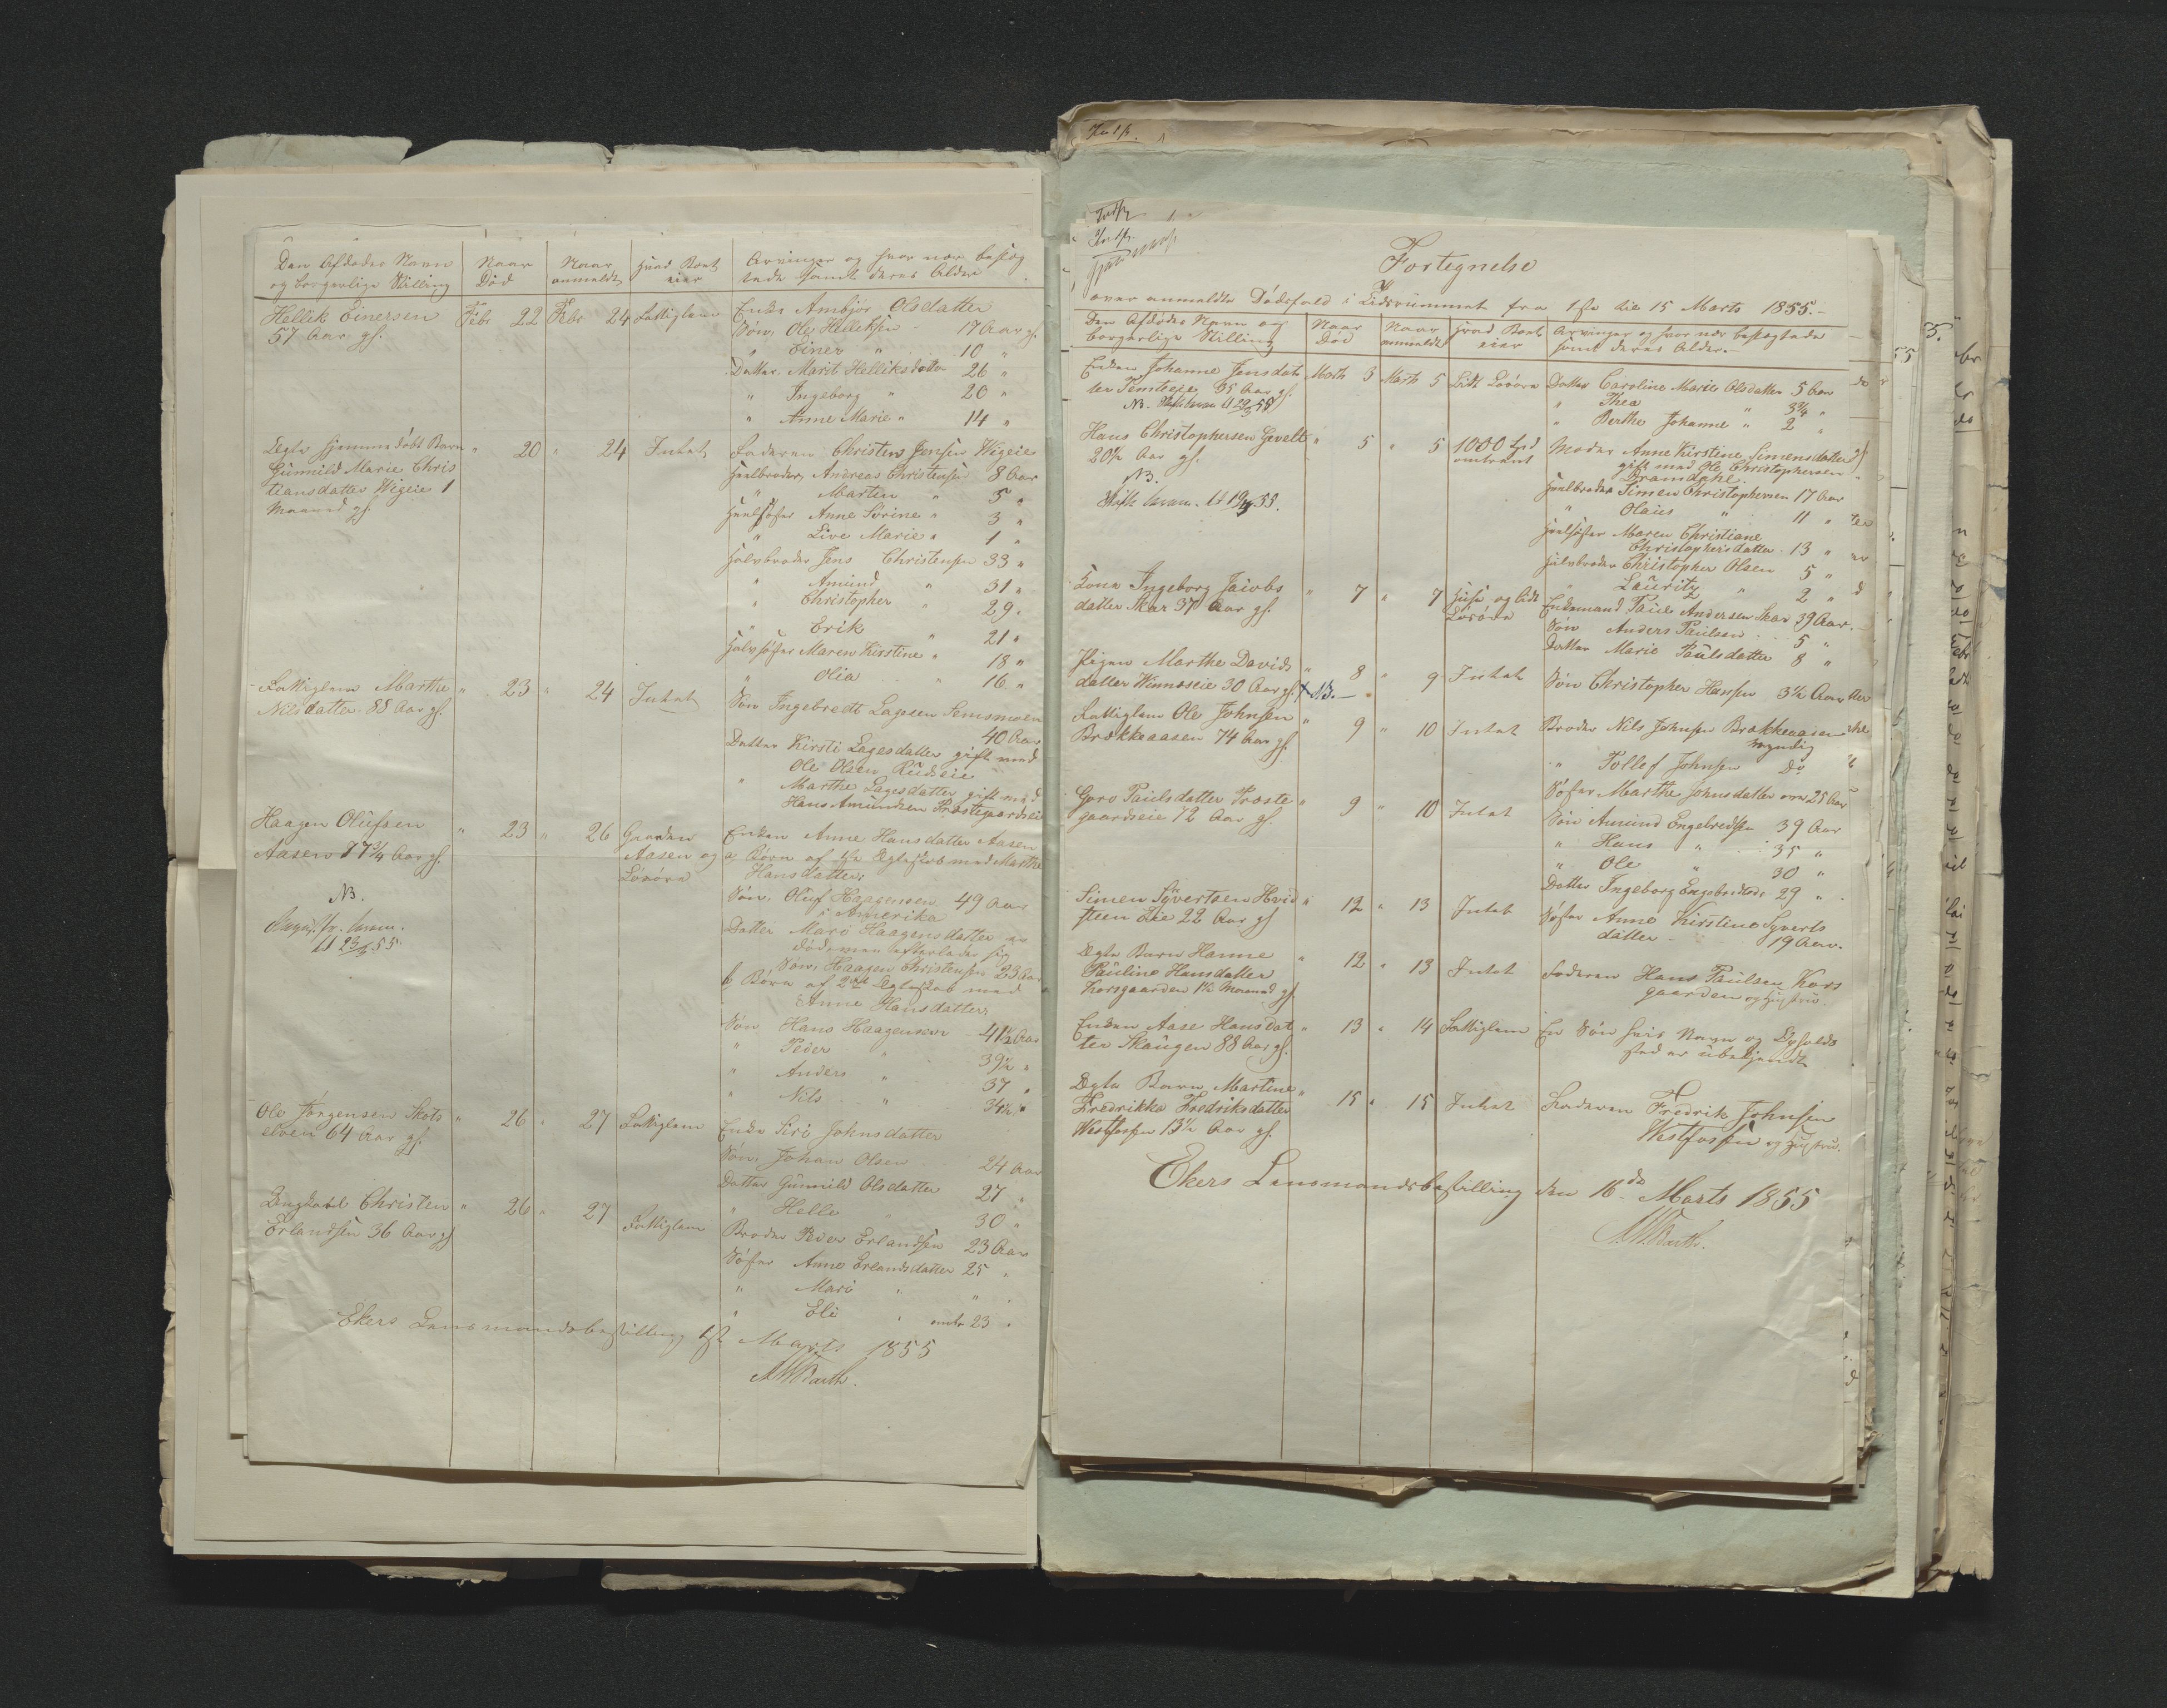 Den Afdødes Navn
og borgerlige Stilling
Naar
Død
Naar
anmeldt
Hvad Boet
eier
Arvinger og hvor nær beslæg
tede samt deres Alder
Hellik Einersen
57 Aar gl.
Febr 22 Febr 24 Fattiglem
Enke Ambjør Olsdatter
Søn, Ole Helliksen 17 Aar gl.
" Einer " 10 "
Datter Marit Helliksdatter 26 "
" Ingeborg " 20 "
" Anne Marie " 14 "
Ægte hjemmedøbt Barn
Gunnild Marie Chris
tiansdatter Wigeie 1
Maaned gl.
" 20 " 24 Intet
Faderen Christen Jensen Wigeie
Heelbroder Andreas Christensen 8 Aar
" Marten " 5 "
Heelsøster Anne Sørine " 3 "
" Live Marie " 1 "
Halvbroder Jens Christensen 33 "
" Amund " 31 "
" Christopher " 29 "
" Erik " 21 "
Halvsøster Maren Kirstine " 18 "
" Olia " 16 "
Fattiglem Marthe
Nilsdatter 88 Aar gl.
" 23 " 24 Intet
Søn Ingebredt Lagesen Semsmoen
40 Aar
Datter Kirsti Lagesdatter gift med
Ole Olsen Rudseie
" Marthe Lagesdatter gift med
Hans Amundsen Præstegaardseie
Haagen Olufsen
Aasen 77 3/4 Aar gl.
" 23 " 26 Gaarden
Aasen og
Løsøre
NB.
23/3 55.
Enken Anne Hansdatter Aasen
a, Børn af 1ste Ægteskab med Marthe
Hansdatter:
Søn, Oluf Haagensen 49 Aar
i Amerika
Datter Mari Haagensdatter er
død men efterlader sig
Søn, Haagen Christensen 23 Aar
b, Børn af 2det Ægteskab med
Anne Hansdatter:
Søn Hans Haagensen 41 1/2 Aar
" Peder " 39 1/2 "
" Anders " 37 "
" Nils " 34 1/2 "
Ole Jørgensen Skots
elven 64 Aar gl.
" 26 " 27 Fattiglem
Enke Siri Johnsdatter
Søn, Johan Olsen 24 Aar
Datter Gunnild Olsdatter 27 "
" Helle " 30 "
Ungkarl Christen
Erlandsen 36 Aar gl
" 26 " 27 Fattiglem
Broder Peder Erlandsen 23 Aar
Søster Anne Erlandsdatter 25 "
" Mari " "
" Eli " omtr 23 "
Ekers Lensmandsbestilling 1ste Marts 1855
Barth.
Fortegnelse
over anmeldte Dødsfald i Tidsrummet fra 1ste til 15 Marts 1855.
Den Afdødes Navn og
borgerlige Stilling
Naar
Død
Naar
anmeldt
Hvad Boet
eier
Arvinger og hvor nær beslægtede
samt deres Alder.
Enken Johanne Jensdat
ter Temteeie 35 Aar gl.
NB.
Marts 3 Marts 5 Lidt Løsøre
Datter Caroline Marie Olsdatter 5 Aar
" Thea " 3 3/4 "
" Berthe Johanne " 2 "
Hans Christophersen Gevelt
20 1/2 Aar gl.
NB.
" 5 " 5 1000 Spd
omtrent
Moder Anne Kirstine Simensdatter
gift med Ole Christophersen
Bramdahl.
Heelbroder Simen Christophersen 17 Aar
" Olaus " 11 "
Heelsøster Maren Christiane
Christophersdatter 13 "
Halvbroder Christopher Olsen 5 "
" Lauritz " 2 "
Kone Ingeborg Jacobs
datter Skar 37 Aar gl.
" 7 " 7 Huse og lidt
Løsøre
Enkemand Paul Andersen Skar 39 Aar.
Søn Anders Paulsen 5 "
Datter Marie Paulsdatter 8 "
Pigen Marthe Davids
datter Winnæseie 30 Aar gl. NB.
" 8 " 9 Intet
Søn Christopher Hansen 3 1/2 Aar
Fattiglem Ole Johnsen
Brækkeaasen 74 Aar gl.
" 9 " 10 Intet
Broder Nils Johnsen Brækkeaasen
myndig
" Tollef Johnsen Do
Søster Marthe Johnsdatter over 25 Aar
Goro Paulsdatter Præste
gaardseie 72 Aar gl.
" 9 " 10 Intet
Søn Amund Engebredtsen 39 Aar
" Hans " 35 "
" Ole " 30 "
Datter Ingeborg Engebredtsdr 29 "
Simen Syvertsen Hvid
steen Eie 22 Aar gl
" 12 " 13 Intet
Søster Anne Kirstine Syverts
datter 19 Aar.
Ægte Barn Hanne
Pauline Hansdatter
Korsgaarden 1 1/2 Maaned gl.
" 12 " 13 Intet
Faderen Hans Paulsen Kors
gaarden og Hustru.
Enken Aase Hansdat
ter Skaugen 88 Aar gl.
" 13 " 14 Fattiglem
En Søn hvis Navn og Opholds
sted er ubekjendt
Ægte Barn Martine
Fredrikke Fredriksdatter
Westfossen 13 1/2 Aar gl.
" 15 " 15 Intet
Faderen Fredrik Johnsen
Westfossen og Hustru.
Ekers Lensmandsbestilling den 16de Marts 1855
Barth.